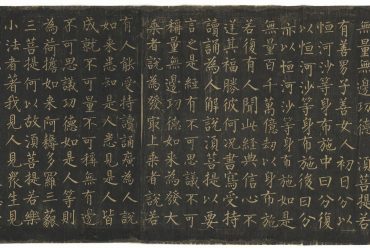 無量無邊功德須菩提若
有善男子善女人初日分以
恒河沙等身布施中日分復
以恒河沙等身布施後日分
亦以恒河沙等身布施如是
無量百千萬億劫以身布施
若復有人聞此經典信心不
逆其福勝彼何況書寫受持
讀誦為人解說須菩提以要
言之是經有不可思議不可
稱量無邊功德如來為發大
乘者說為發最上乘者說若
有人能受持讀誦廣為人說
如來悉知是人悉見是人皆
成就不可量不可稱無有邊
不可思議功德如是人等則
為荷擔如來阿耨多羅三藐
三菩提何以故須菩提若樂
小法者著我見人見眾生見